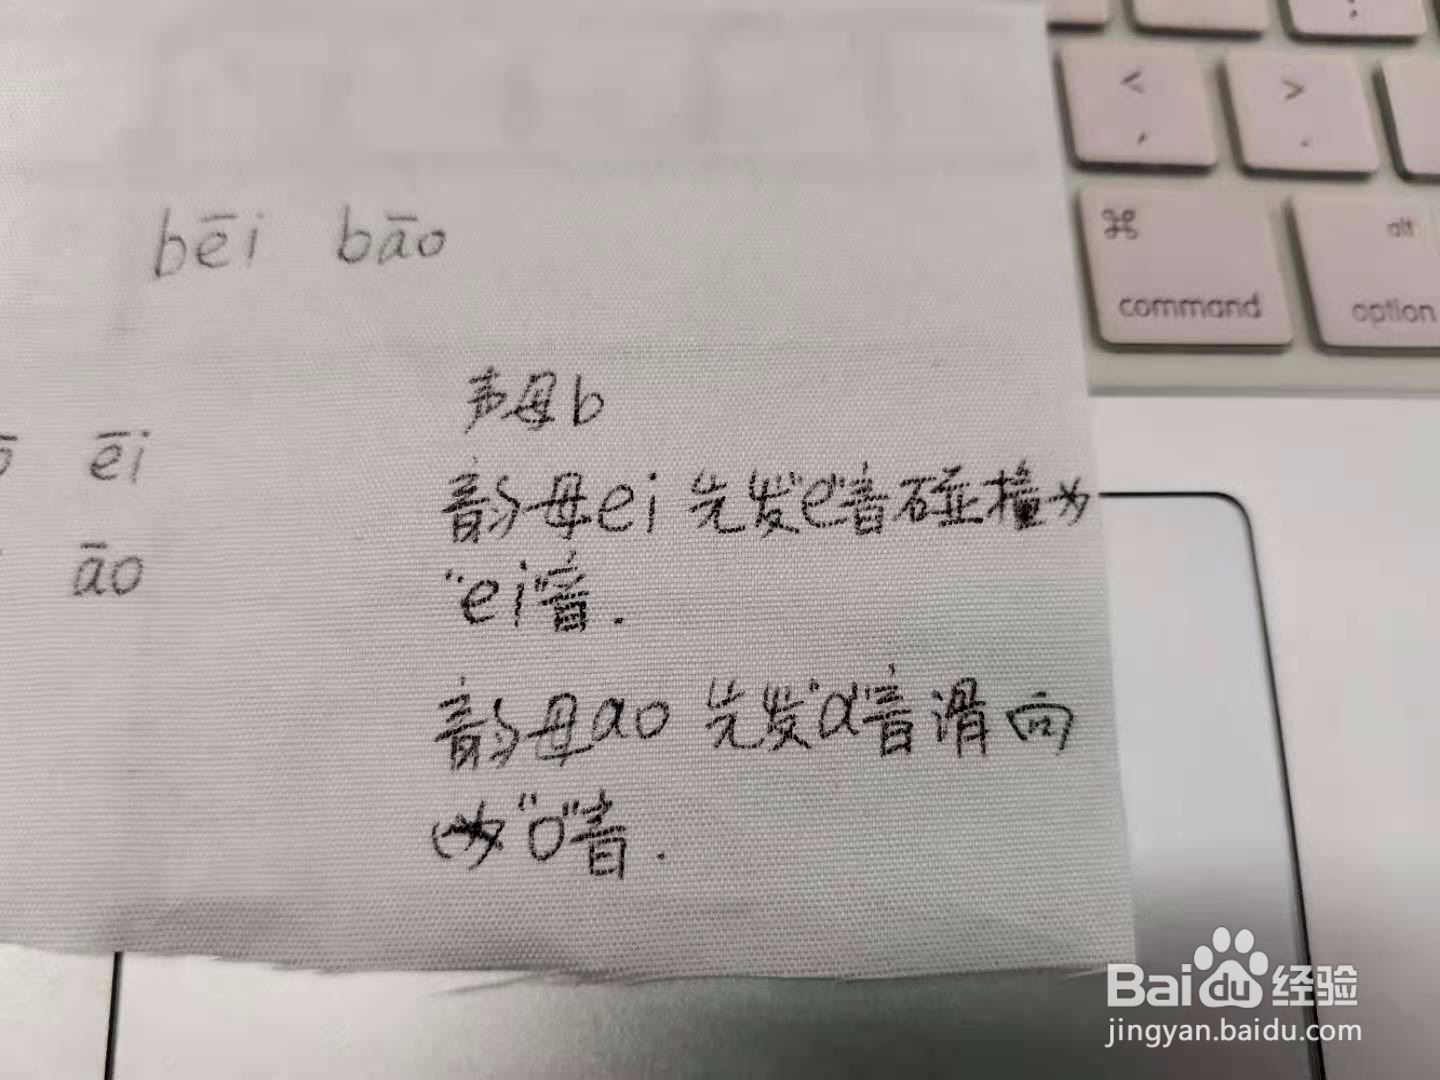 bēi bāo
声母b
ēi
韵母ei 先发"e"音碰撞为
"ei"音.
āo
韵母ao 先发"a"音滑向
"o"音.
<
,
>
.
⌘
command
alt
option
Baidu经验
jingyan.baidu.com